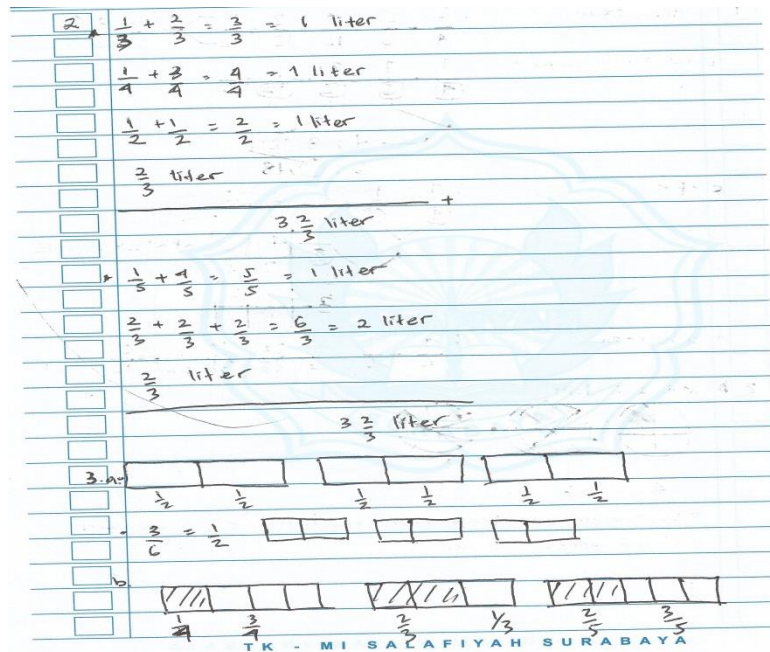 2. 1/3 + 2/3 = 3/3 = 1 liter
1/4 + 3/4 = 4/4 = 1 liter
1/2 + 1/2 = 2/2 = 1 liter
2/3 liter
+
3 2/3 liter
1/5 + 4/5 = 5/5 = 1 liter
2/3 + 2/3 + 2/3 = 6/3 = 2 liter
2/3 liter
3 2/3 liter
3.a.
1/2 1/2 1/2 1/2 1/2 1/2
- 3/6 = 1/2
b.
1/4 3/4 2/3 1/3 2/5 3/5
TK - MI SALAFIYAH SURABAYA